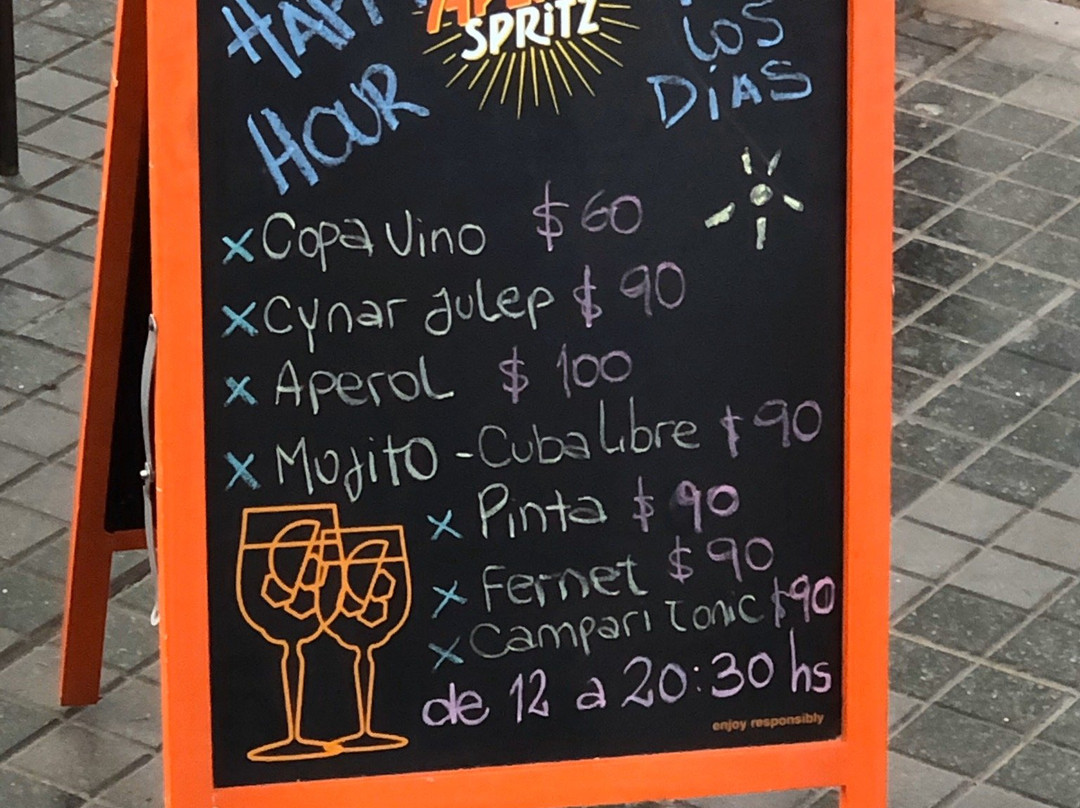 HAPPY
APEROL
SPRITZ
LOS
HOUR
DÍAS
x Copa Vino $60
x Cynar Julep $90
x Aperol $100
x Mojito - Cuba Libre $90
x Pinta $90
x Fernet $90
x Campari Tonic $90
de 12 a 20:30 hs
enjoy responsibly